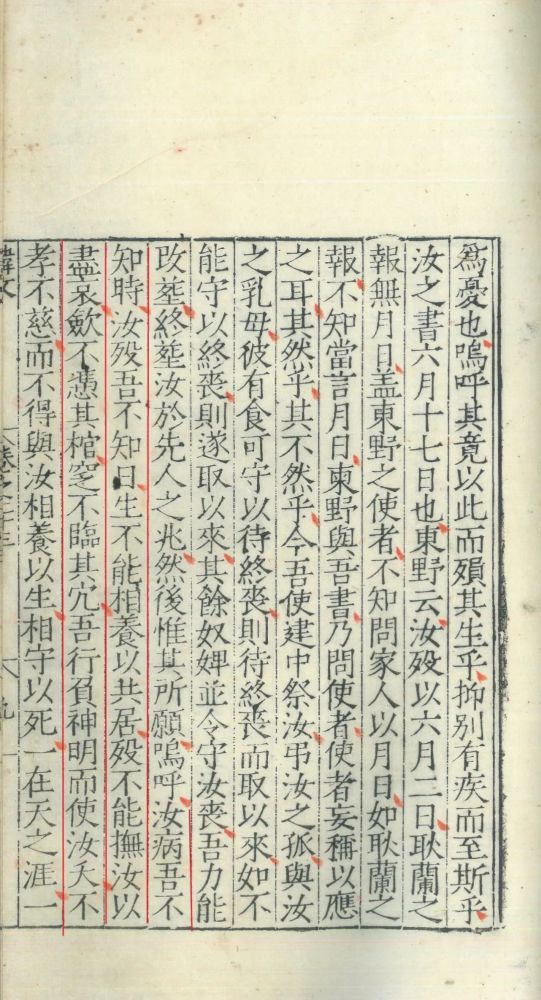 爲憂也嗚呼其竟以此而殞其生乎抑别有疾而至斯乎
汝之書六月十七日也東野云汝殁以六月二日耿蘭之
報無月日盖東野之使者不知問家人以月日如耿蘭之
報不知當言月日東野與吾書乃問使者使者妄稱以應
之耳其然乎其不然乎今吾使建中祭汝弔汝之孤與汝
之乳母彼有食可守以待終喪則待終喪而取以來如不
能守以終喪則遂取以來其餘奴婢並令守汝喪吾力能
改塟終塟汝於先人之兆然後惟其所願嗚呼汝病吾不
知時汝殁吾不知日生不能相養以共居殁不能撫汝以
盡哀歛不憑其棺窆不臨其穴吾行負神明而使汝夭不
孝不慈而不得與汝相養以生相守以死一在天之涯一